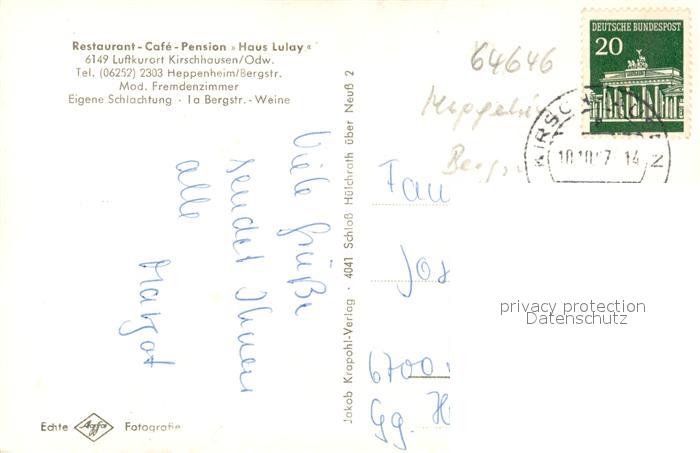 Restaurant - Café - Pension »Haus Lulay«
6149 Luftkurort Kirschhausen/Odw.
Tel. (06252) 2303 Heppenheim/Bergstr.
Mod. Fremdenzimmer
Eigene Schlachtung · Ia Bergstr.-Weine
Viele Grüße
sendet Ihnen
alle
Margot
Echte Agfa Fotografie
Jakob Krapohl-Verlag · 4041 Schloß Hülchrath über Neuß 2
64646
DEUTSCHE BUNDESPOST
20
KIRSCH
10.10. 7. 14
Fam
Jos
6700
Gg. H
privacy protection
Datenschutz